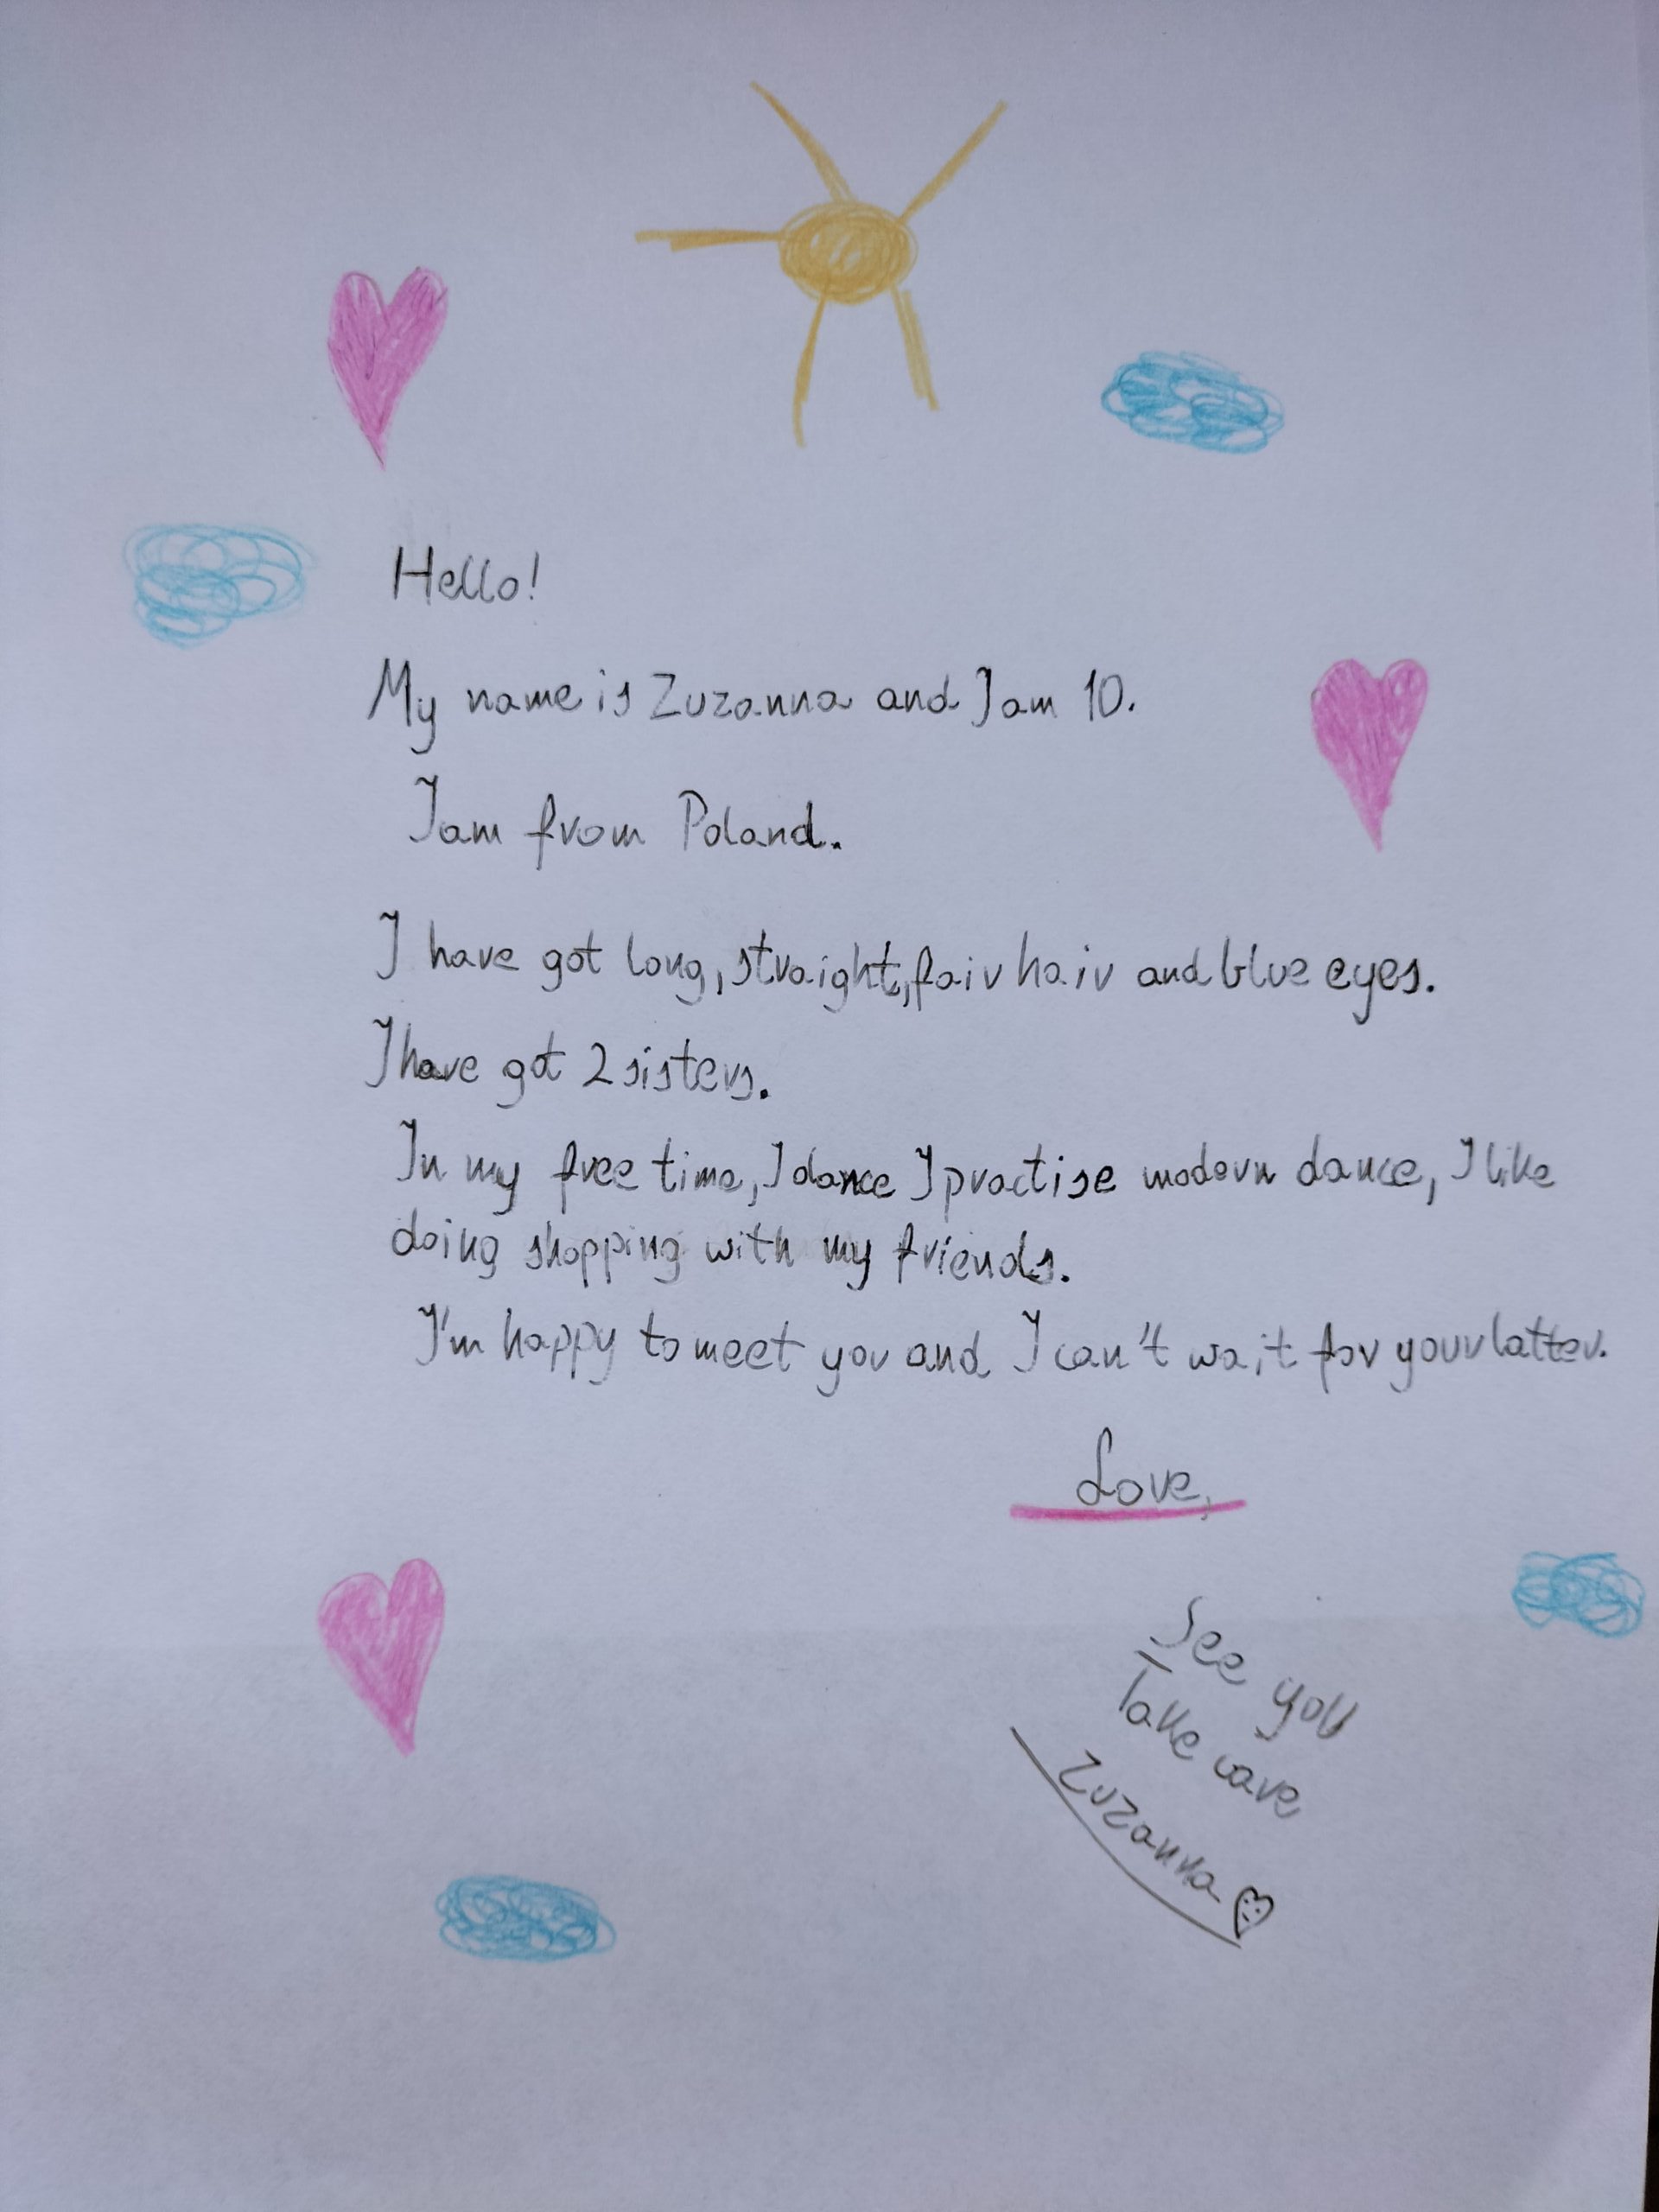 Hello!
My name is Zuzanna and I am 10.
I am from Poland.
I have got long, straight, fair hair and blue eyes.
I have got 2 sisters.
In my free time, I dance I practise modern dance, I like
doing shopping with my friends.
I'm happy to meet you and I can't wait for your latter.
Love,
See you
Take care
Zuzanna